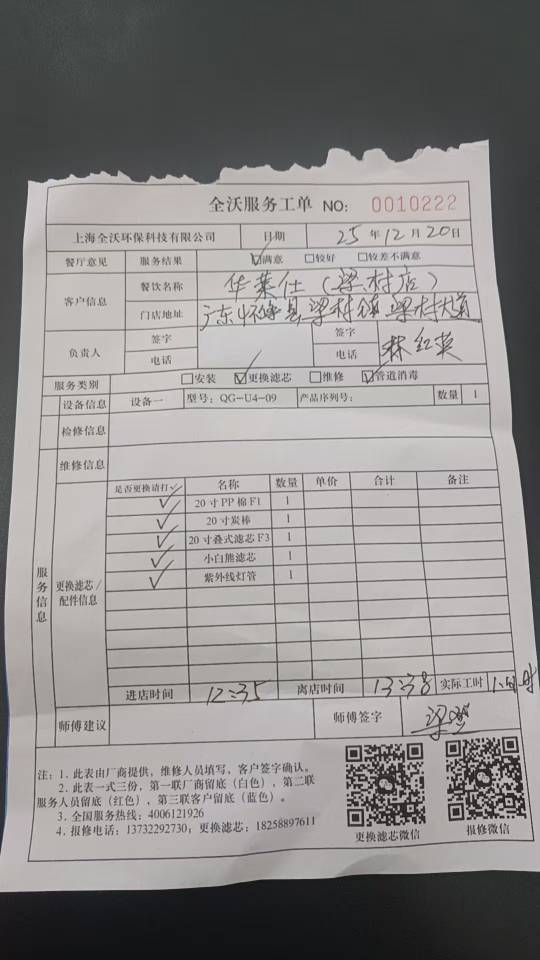 全沃服务工单 NO: 0010222
上海全沃环保科技有限公司 日期 25年12月20日
餐厅意见 服务结果 ☑满意 □较好 □较差不满意
客户信息 餐饮名称 华莱仕(梁村店)
门店地址 广东怀集县梁村镇梁村大道
负责人 签字 签字
电话 电话 林红英
服务类别 □安装 ☑更换滤芯 □维修 ☑管道消毒
设备信息 设备一 型号: QG-U4-09 产品序列号: 数量 1
检修信息
维修信息
服务信息
更换滤芯/配件信息
是否更换请打✓ 名称 数量 单价 合计 备注
✓ 20寸PP棉F1 1
✓ 20寸炭棒 1
✓ 20寸叠式滤芯F3 1
✓ 小白熊滤芯 1
✓ 紫外线灯管 1
进店时间 12:35 离店时间 13:38 实际工时
师傅建议 师傅签字
注: 1. 此表由厂商提供, 维修人员填写、客户签字确认。
2. 此表一式三份, 第一联厂商留底(白色), 第二联
服务人员留底(红色), 第三联客户留底(蓝色)。
3. 全国服务热线: 4006121926
4. 报修电话: 13732292730; 更换滤芯: 18258897611
更换滤芯微信 报修微信